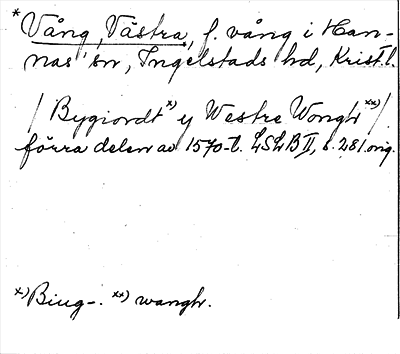 * Vång, Västra, f. vång i Han-
nas sn, Ingelstads hd, Krist. l.
/ Bygiordt x) y Westre Wongh xx) /
förra delen av 1570-t. LSLB II, s. 281 orig.
x) Biug-. xx) wangh.